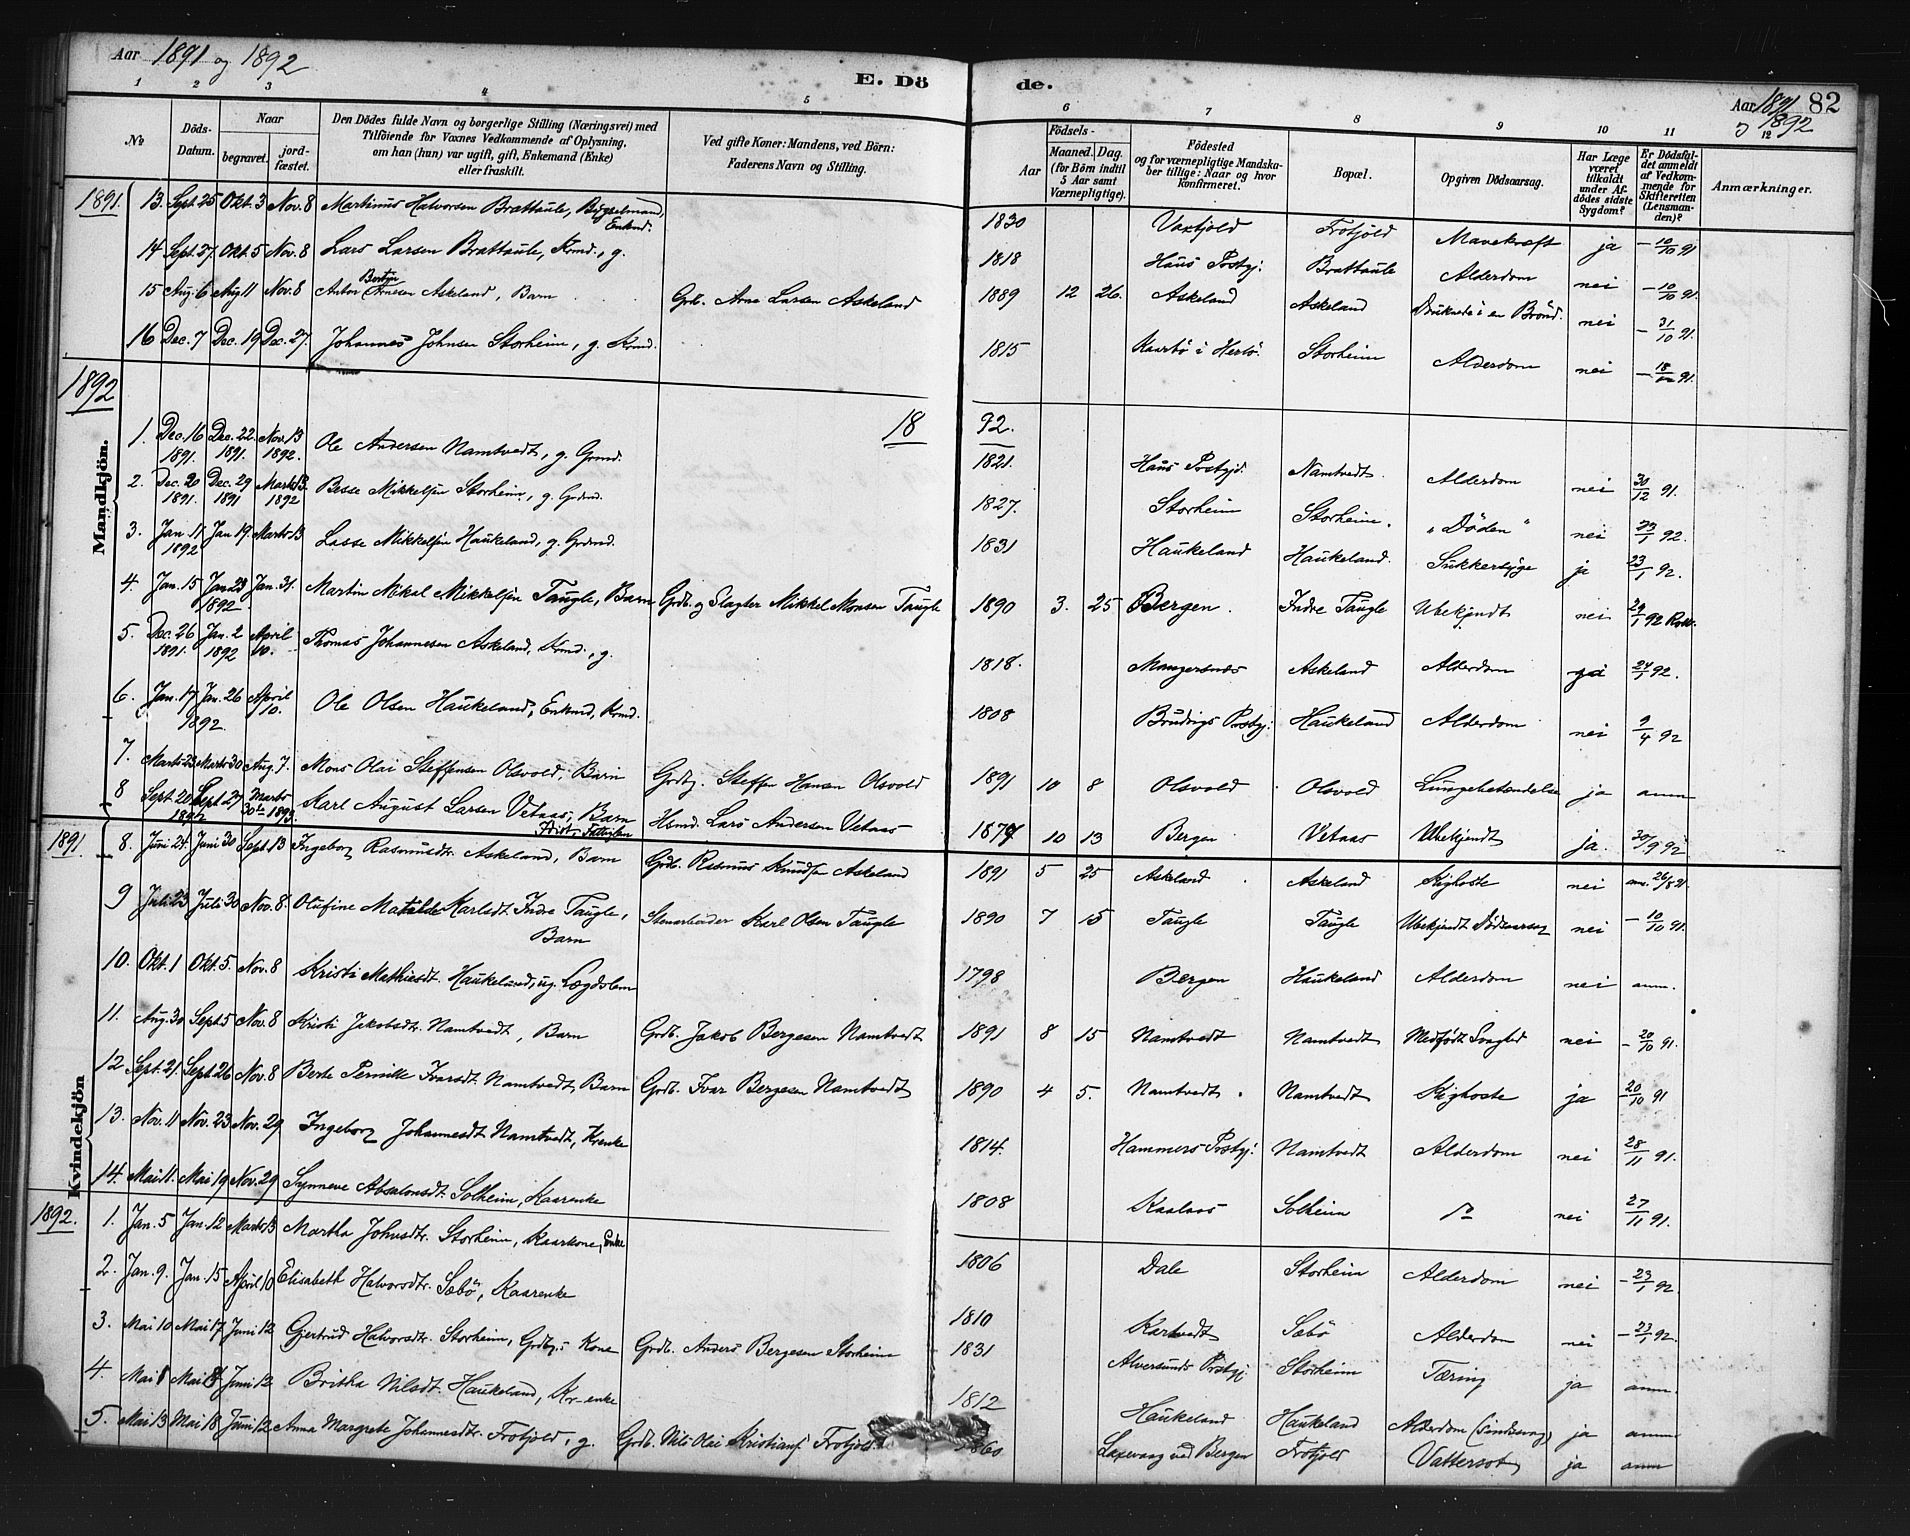 Aar 1891 og 1892
E. Dö de.
Aar 1891 82
1892
1 2 3 4 5 6 7 8 9 10 11 12
No
Döds-Datum.
Naar
begravet.
jordfæstet.
Den Dödes fulde Navn og borgerlige Stilling (Næringsvei) med Tilföiende for Voxnes Vedkommende af Oplysning, om han (hun) var ugift, gift, Enkemand (Enke) eller fraskilt.
Ved gifte Koner: Mandens, ved Börn: Faderens Navn og Stilling.
Födsels-
Aar
Maaned. Dag.
(for Börn indtil 5 Aar samt Værnepligtige).
Födested og for værnepligtige Mandskaber tillige: Naar og hvor konfirmeret.
Bopæl.
Opgiven Dödsaarsag.
Har Læge været tilkaldt under Afdödes sidste Sygdom?
Er Dödsfaldet anmeldt af Vedkommende for Skifteretten (Lensmanden)?
Anmærkninger.
1891. 13. Sept. 25 Okt. 3 Nov. 8 Martinus Halvorsen Brattaule, Bygselmand, Enkmd. 1830 Frotjold Mavekræft ja 10/10 91
14 Sept. 27. Okt. 5 Nov. 8 Lars Larsen Brattaule, Krmd., g. 1818 Haus Prstgj. Brattaule Alderdom nei 10/10 91.
15 Aug. 6 Aug 11 Nov. 8 Anton Arnesen Askeland, Barn Grdb. Arne Larsen Askeland 1889 12 26. Askeland Askeland Druknede i en Brönd. nei 31/10 91.
16 Dec. 7 Dec. 19 Dec. 27. Johannes Johnsen Storheim, g. Krmd. 1815 Kaarbö i Herlö. Storheim Alderdom nei 91.
1892 18 92.
Mandkjön.
1. Dec. 16 1891. Dec. 22. 1891. Nov. 13 1892. Ole Andersen Namtvedt, g. Grmd. 1821. Haus Prstgjd. Namtvedt. Alderdom nei 30/12 91.
2. Dec. 20 1891. Dec. 29 1891 Marts 13. 1892 Besse Mikkelsen Storheim, g. Grdmd. 1827. Storheim Storheim. "Döden" nei 92.
3. Jan. 11 1892 Jan 19. Marts 13 Lasse Mikkelsen Haukeland, g. Grdmd. 1831 Haukeland Haukeland. Sukkersyge ja 23/1 92.
4. Jan. 15 Jan 23 1892 Jan. 31. Martin Mikal Mikkelsen Taugle, Barn Grdb. og Slagter Mikkel Monsen Taugle 1890 3. 25 Bergen. Indre Taugle Ubekjendt nei 92
5. Dec. 26 1891. Jan. 2 1892 April 10. Thomas Johannesen Askeland, Krmd., g. 1818. Mangersnes Askeland Alderdom 24/1 92.
6. Jan. 17 Jan. 26 1892. April 10. Ole Olsen Haukeland, Enkmd, Krmd. 1808 Haukeland Alderdom nei 9/4 92
7. Marts 23 Marts 30 Aug. 7. Mons Olai Steffensen Olsvold, Barn Grdbg. Steffen Hansen Olsvold 1891 10 8 Olsvold Olsvold Lungebetændelse ja anm
8 Sept. 20 Sept. 27 1892 Marts 30te 1893. Karl August Larsen Vetaas, Barn Hsmd. Lars Andersen Vetaas 10 13 Bergen Vetaas Ubekjendt ja. 30/9 92
1891 8. Juni 24. Juni 30 Sept. 13 Ingeborg Rasmusdtr. Askeland, Barn Grdb. Rasmus Knudsen Askeland 1891 5 25 Askeland Askeland Kighoste nei anm. 26/8 91.
9 Juli 23 Juli 30 Nov. 8. Olufine Matilde Karlsdt. Indre Taugle, Barn Stenarbeider Karl Olsen Taugle 1890 7 15 Taugle Taugle Ubekjendt Dödsaarsag nei 10/10 91.
10. Okt. 1 Okt. 5. Nov. 8 Kristi Mathiesdt. Haukeland, ug. Lægdslem 1798 Bergen Haukeland Alderdom nei anm.
11. Aug. 30 Sept 5 Nov. 8 Kristi Jakobsdtr. Namtvedt, Barn Grdb. Jakob Bergesen Namtvedt 1891 8 15 Namtvedt Namtvedt Medfödt Svaghed nei 20/10 91.
Kvindekjön
12 Sept. 21. Sept. 26 Nov. 8 Berte Pernille Ivarsdt. Namtvedt, Barn Grdb. Ivar Bergesen Namtvedt 1890 4 5. Namtvedt. Namtvedt Kighoste ja 20/10 91
13. Nov. 11 Nov. 23 Nov. 29 Ingeborg Johannesdt Namtvedt, Krenke 1814. Hammers Prstgj. Namtvedt Alderdom nei 28/11 91.
14. Mai 11. Mai 19 Nov. 29 Synneve Absalonsdt. Solheim, Kaarenke 1808 Kaalaas Solheim nei 27/11 91.
1892. 1. Jan. 5 Jan. 12 Marts 13 Martha Johnsdtr. Storheim, Kaarkone, Enke 1806 Dale Storheim Alderdom nei 23/1 92.
2. Jan. 9. Jan. 15 April 10 Elisabeth Halvorsdtr. Sæbö, Kaarenke 1810 Kartvedt Sæbö Alderdom nei 23/1 92.
3. Mai 10 Mai 17 Juni 12 Gjertrud Halvorsdtr. Storheim, Grdbgs Kone Grdb. Anders Bergesen Storheim 1831 Alversunds Prstgj. Storheim Tæring ja anm.
4. Mai Mai Juni 12 Britha Nilsdt. Haukeland, Kr-enke 1812 Haukeland Haukeland Alderdom ja anm
5. Mai 13 Mai 18 Juni 12 Anna Margrete Johannesdtr. Frotjold, g. Grdb. Nils Olai Kristians. Frotjold Laxevaag ved Bergen Frotjold Vattersot ja anm